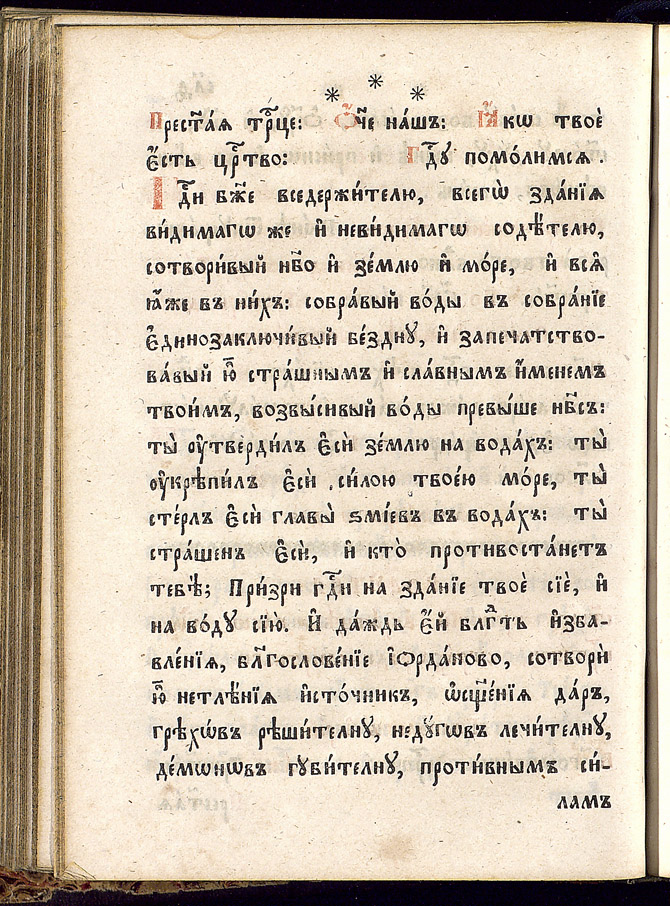 * * *
Прест҃а́ѧ трⷪ҇це: Ѻ҆́ч҃е на́шъ: Ꙗ҆́кѡ твоѐ
є҆́сть црⷭ҇тво: Гдⷭ҇ꙋ помо́лимсѧ
Гдⷭ҇и бж҃е вседержи́телю, всегѡ̀ зда́нїѧ
ви́димагѡ же и҆ неви́димагѡ содѣ́телю,
сотвори́вый нб҃о и҆ зе́млю и҆ мо́ре, и҆ всѧ̑
ꙗ҆̀же въ ни́хъ: собра́вый во́ды въ собра́нїе
є҆ди́но заключи́вый бе́зднꙋ, и҆ запечатство-
ва́вый ю҆̀ стра́шнымъ и҆ сла́внымъ и҆́менемъ
твои́мъ, возвы́сивый во́ды превы́ше нб҃съ:
ты̀ ᲂу҆тверди́лъ є҆сѝ зе́млю на вода́хъ: ты̀
ᲂу҆крѣпи́лъ є҆сѝ си́лою твое́ю мо́ре, ты̀
сте́рлъ є҆сѝ главы̀ ѕмі́евъ въ вода́хъ: ты̀
стра́шенъ є҆сѝ, и҆ кто̀ противоста́нетъ
тебѣ̀; При́зри гдⷭ҇и на зда́нїе твоѐ сїѐ, и҆
на во́дꙋ сїю̀. И҆ да́ждь є҆́й блгⷣть и҆зба-
вле́нїѧ, бл҃гослове́нїе і҆ѻрда́ново, сотворѝ
ю҆̀ нетлѣ́нїѧ и҆сто́чникъ, ѡ҆сщ҃е́нїѧ да́ръ,
грѣхѡ́въ рѣши́телнꙋ, недꙋ́гѡвъ лечи́телнꙋ,
де́мѡнѡвъ гꙋби́телнꙋ, проти́внымъ си́-
ламъ